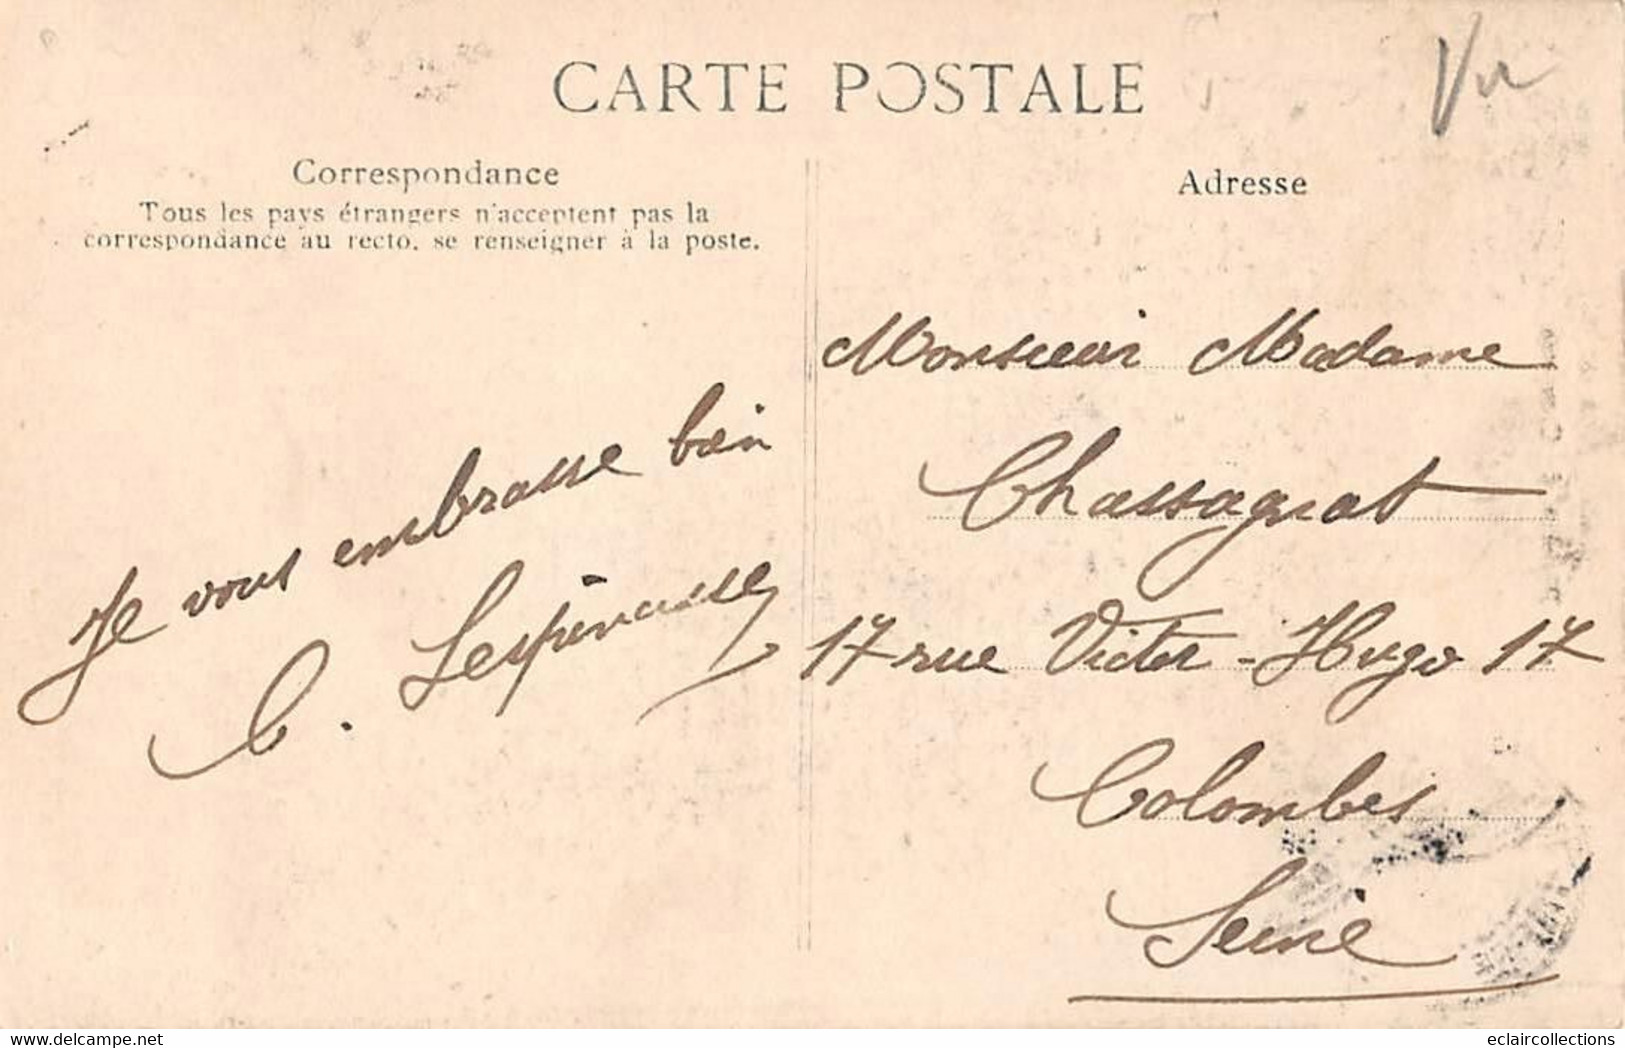 CARTE POSTALE
Vu
Correspondance
Tous les pays étrangers n'acceptent pas la
correspondance au recto, se renseigner à la poste.
Je vous embrasse bien
C. Lespinasse
Adresse
Monsieur Madame
Chassagnat
17 rue Victor-Hugo 17
Colombes
Seine
eclaircollections